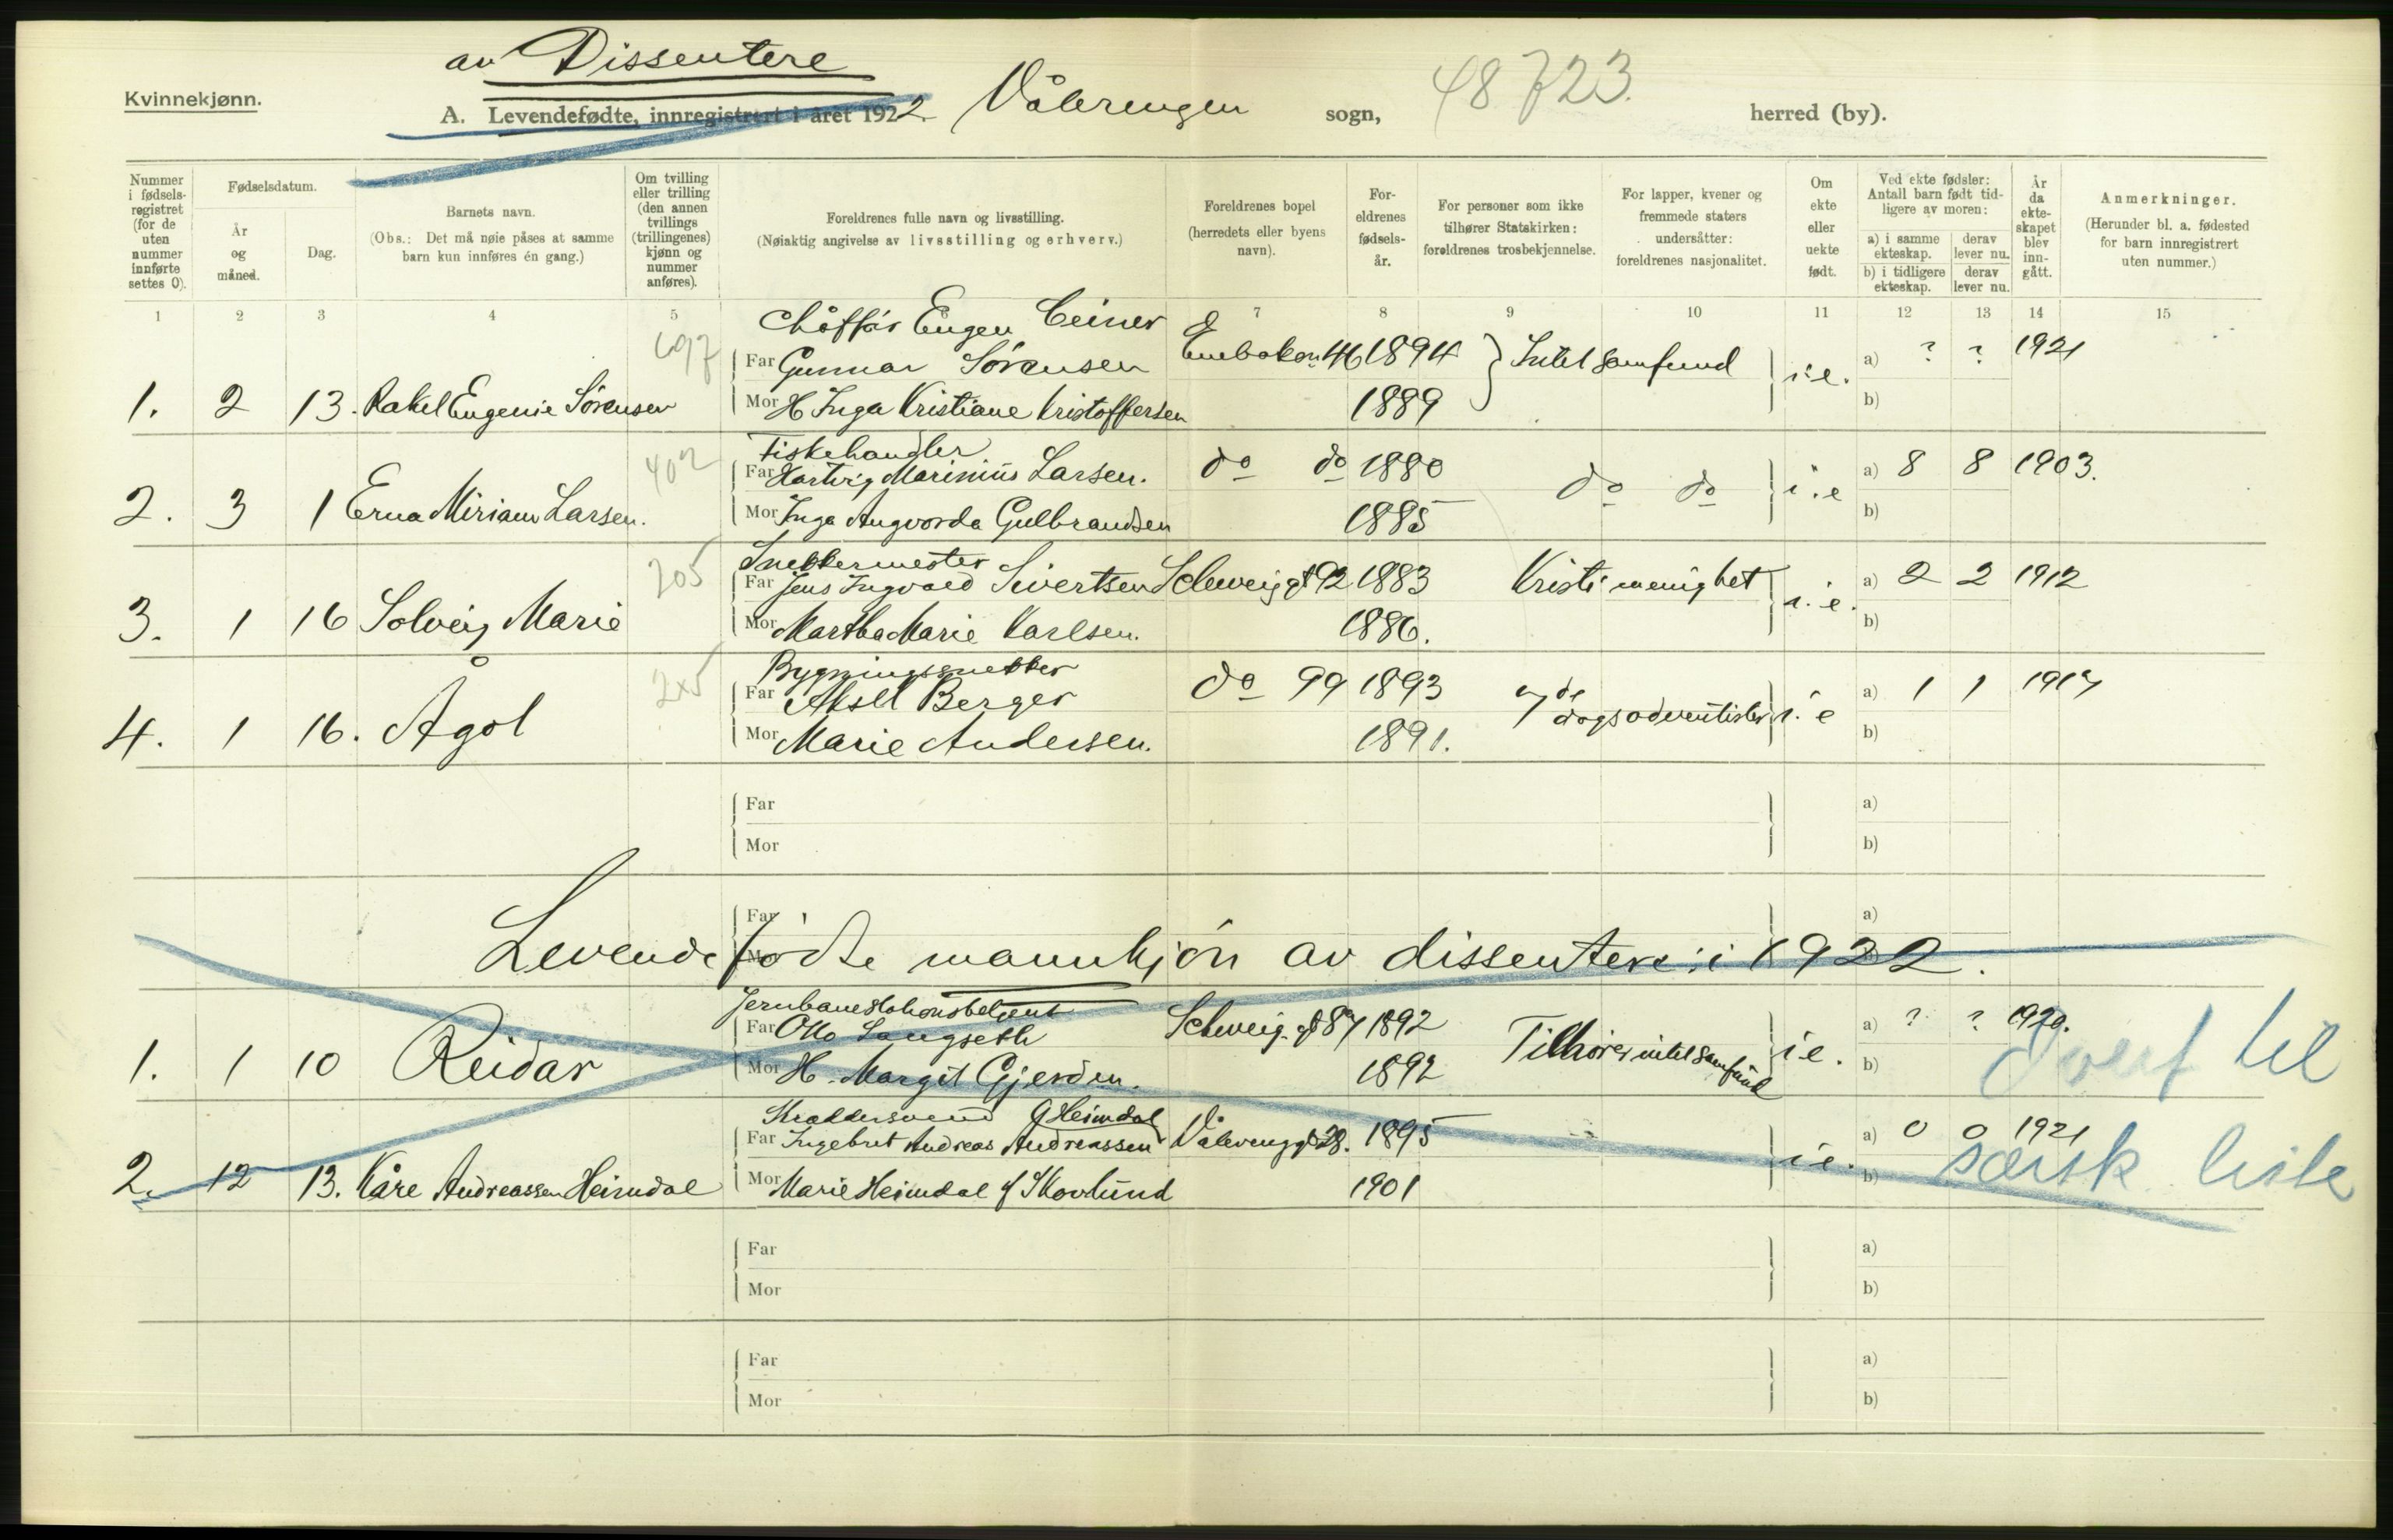 av Dissentere
Kvinnekjønn.
A. Levendefødte, innregistrert i året 1922. Vålerengen sogn, 48723. herred (by).
Nummer i fødselsregistret (for de uten nummer innførte settes 0).
Fødselsdatum.
År og måned.
Dag.
Barnets navn.
(Obs.: Det må nøie påses at samme barn kun innføres én gang.)
Om tvilling eller trilling (den annen tvillings (trillingenes) kjønn og nummer anføres).
Foreldrenes fulle navn og livsstilling.
(Nøiaktig angivelse av livsstilling og erhverv.)
Foreldrenes bopel (herredets eller byens navn).
Foreldrenes fødselsår.
For personer som ikke tilhører Statskirken: foreldrenes trosbekjennelse.
For lapper, kvener og fremmede staters undersåtter: foreldrenes nasjonalitet.
Om ekte eller uekte født.
Ved ekte fødsler: Antall barn født tidligere av moren:
a) i samme ekteskap. derav lever nu.
b) i tidligere ekteskap. derav lever nu.
År da ekteskapet blev inngått.
Anmerkninger.
(Herunder bl. a. fødested for barn innregistrert uten nummer.)
1 2 3 4 5 7 8 9 10 11 12 13 14 15
Chåffør Eugen Ceiner
697
Far Gunnar Sörensen Enebakv 46 1894 Intet samfund i.e. a) ? ? 1921
1. 2 13. Rakel Eugenie Sörensen Mor H Inga Kristiane Kristoffersen 1889 b)
Fiskehandler
402
Far Hartvig Marinius Larsen. do do 1880 do do i.e a) 8 8 1903.
2. 3 1 Erna Miriam Larsen. Mor Inga Angvorda Gulbrandsen 1885 b)
Snekkermester
205
Far Jens Ingvald Sivertsen Schweig gt 92 1883 Kristi menighet i.e. a) 2 2 1912
3. 1 16 Solveig Marie Mor Martha Marie Karlsen. 1886. b)
Bygningssnekker
Far Aksel Berger do 99 1893 7de dags adventister i.e a) 1 1 1917
4. 1 16. Ågot Mor Marie Andersen. 1891. b)
Far a)
Mor b)
Far a)
Levendefödte mannkjön av dissentere i 1922.
Jernbanestationsbetjent
Far Otto Langseth Schweig. gt 87 1892 Tilhörer intet samfund i.e. a) ? ? 1920.
1. 1 10 Reidar Mor H. Margit Gjerden. 1892 b)
ført til
Skreddersvend G Heimdal
Far Ingebret Andreas Andreassen Vålerenggt 28. 1895 i.e. a) 0 0 1921
2. 12 13. Kåre Andreassen Heimdal Mor Marie Heimdal f Skovlund 1901 b)
særsk. liste
Far a)
Mor b)
Far a)
Mor b)